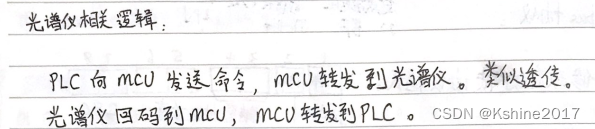 光谱仪相关逻辑:
PLC 向 MCU 发送命令，MCU转发到光谱仪。类似透传。
光谱仪回码到MCU，MCU转发到PLC。
CSDN @Kshine2017